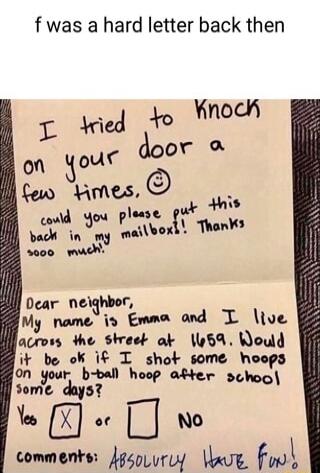 f was a hard letter back then
I tried to Knock
on your door a
few times. ☺
could you please put this
back in my mailbox?! Thanks
sooo much!
Dear neighbor,
My name is Emma and I live
across the street at 1659. Would
it be ok if I shot some hoops
on your b-ball hoop after school
some days?
Yes [X] or [ ] No
comments: ABSOLUTLY HAVE FUN!